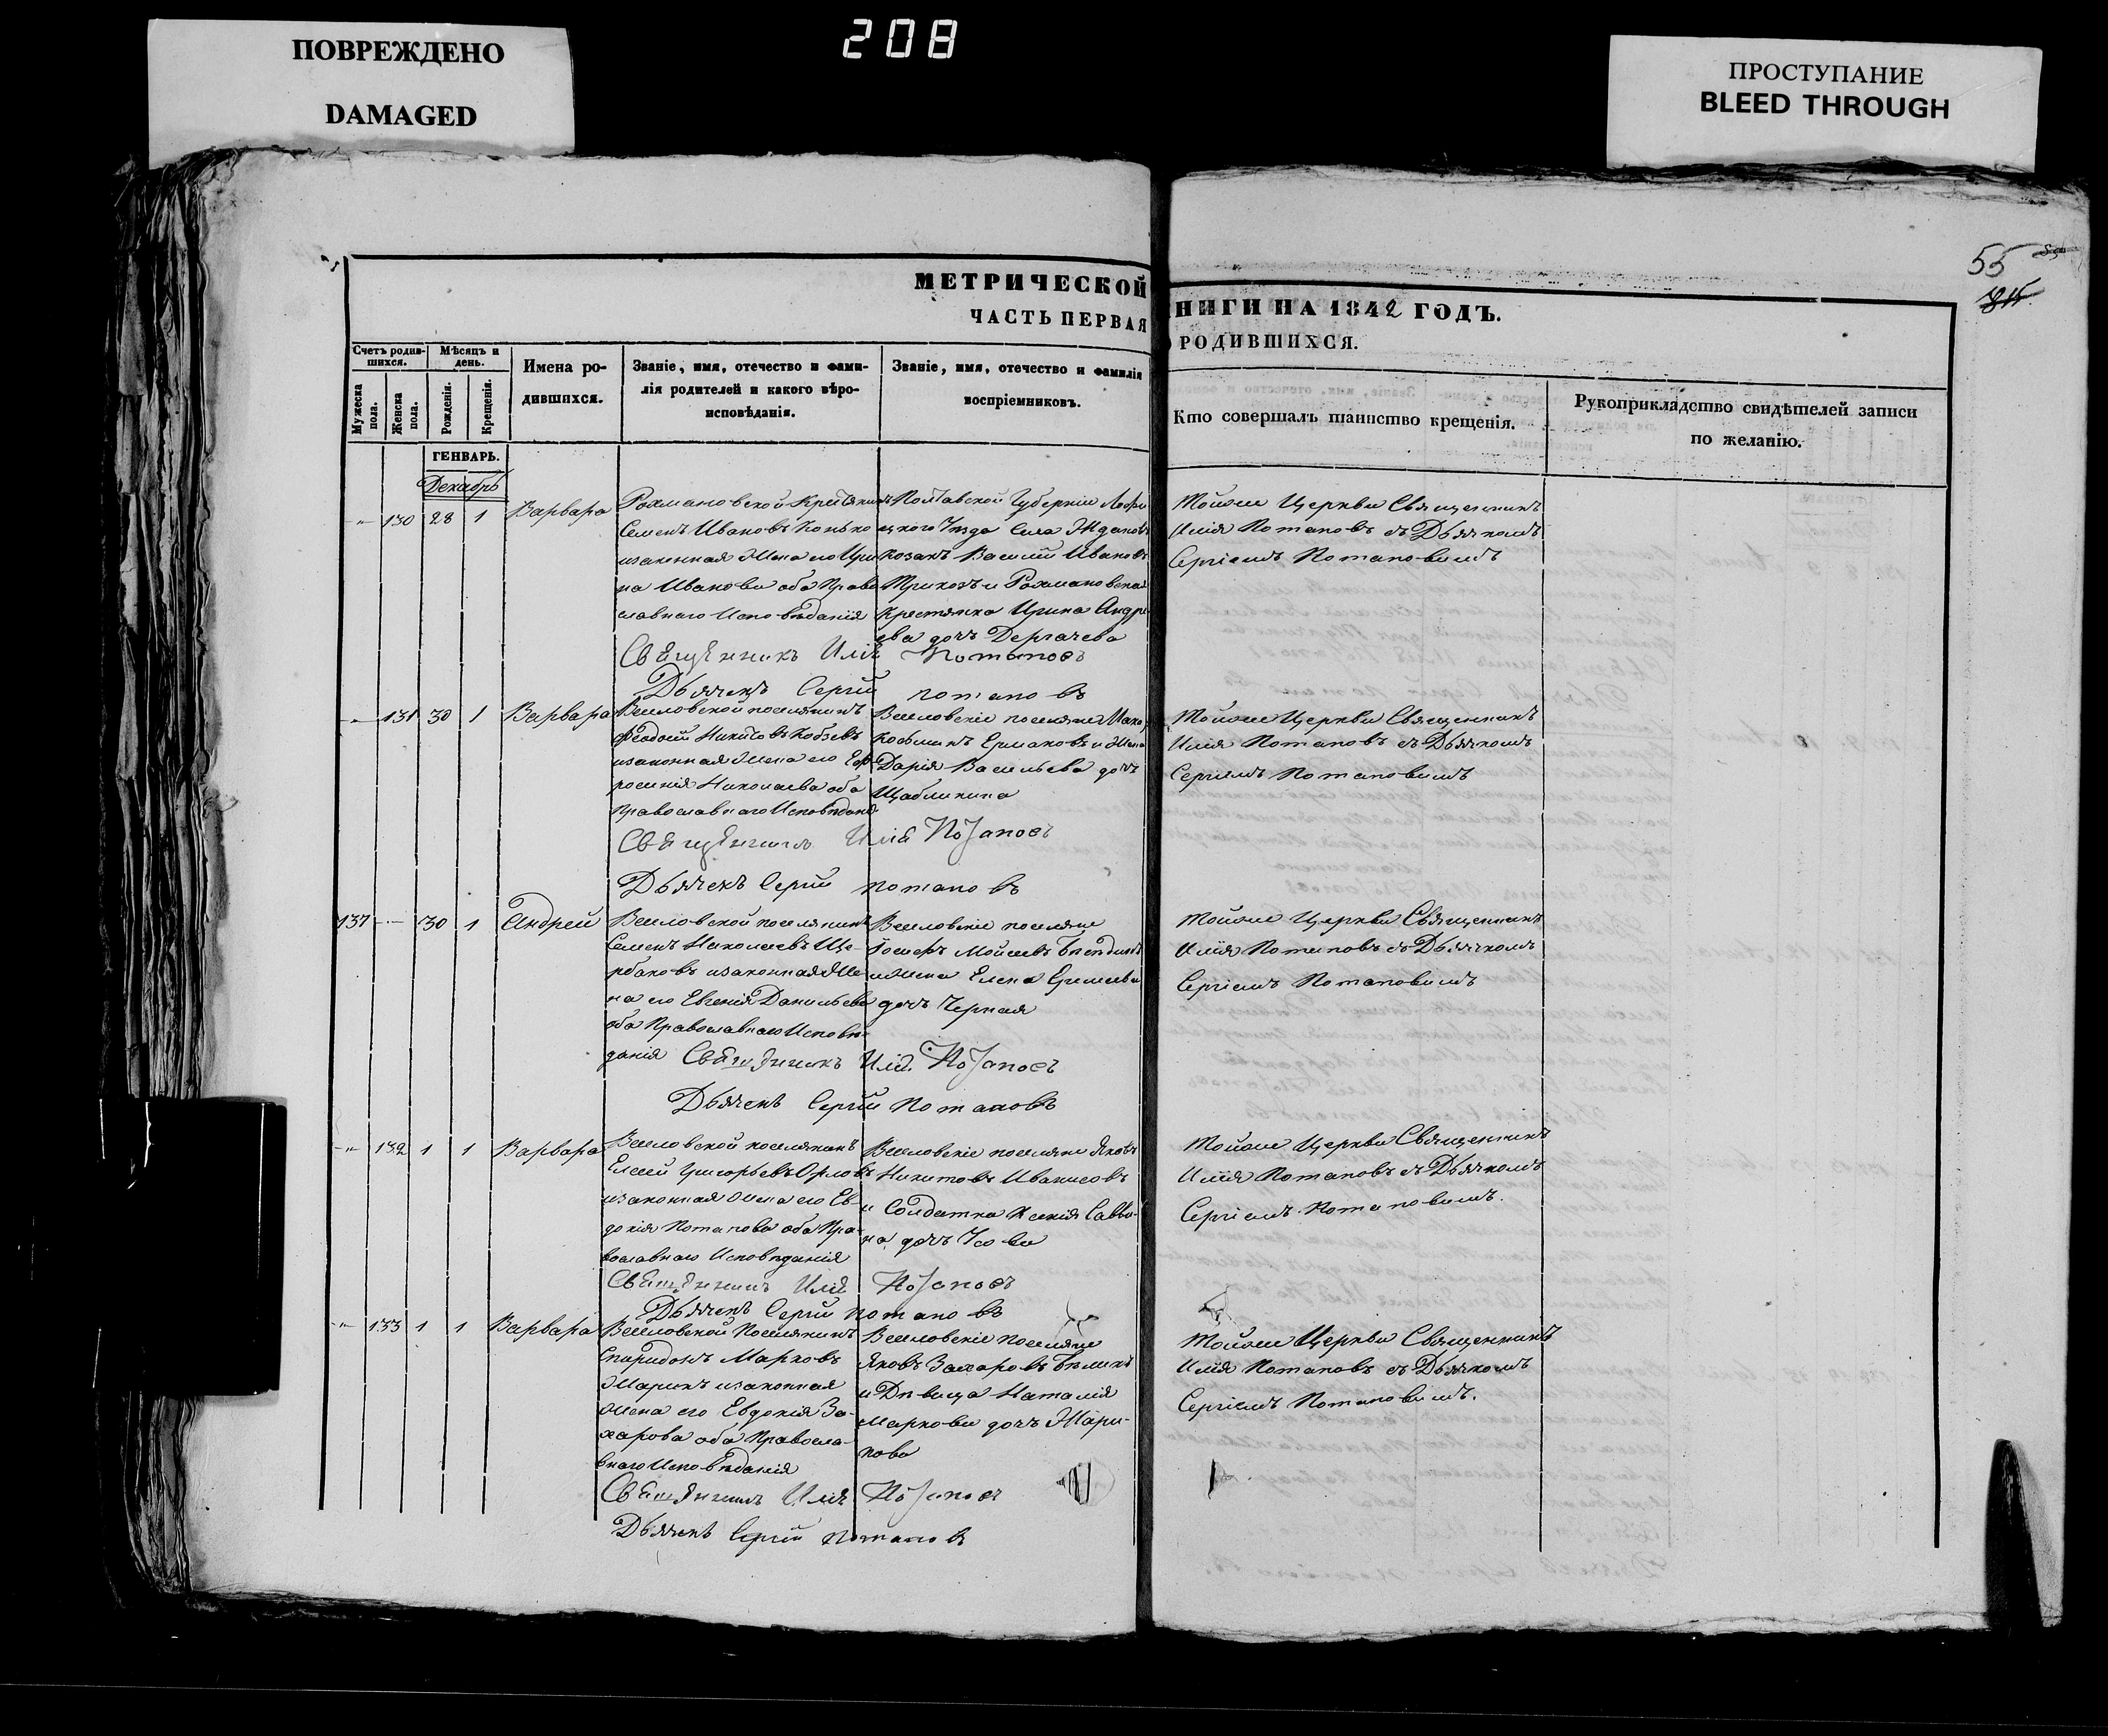 208
ПОВРЕЖДЕНО
DAMAGED
ПРОСТУПАНИЕ
BLEED THROUGH
55
МЕТРИЧЕСКОЙ
НИГИ НА 1842 ГОДЪ.
ЧАСТЬ ПЕРВАЯ
РОДИВШИХСЯ.
Счетъ родив-
шихся.
Мѣсяцъ и
день.
Мужеска
пола.
Женска
пола.
Рожденія.
Крещенія.
Имена ро-
дившихся.
Званіе, имя, отечество и фами-
лія родителей и какого вѣро-
исповѣданія.
Званіе, имя, отечество и фамилія
воспріемниковъ.
Кто совершалъ таинство крещенія.
Рукоприкладство свидѣтелей записи
по желанію.
ГЕНВАРЬ.
Декабрь
130 28 1 Варвара
Семенъ Ивановъ
изаконная Жена его Ири
на Иванова оба Право
славнаго Исповѣданія
Полтавской Губерніи
козакъ Василій Ивановъ
Ирина Андре
ева дочь Дергачева
Тойже Церкви Священникъ
Илія Потаповъ съ Дьячкомъ
Сергіемъ Потаповымъ
Священникъ Илія Потаповъ
Дьячекъ Сергій Потаповъ
131 30 1 Варвара
Веселовской поселянинъ
изаконная Жена его Евф
росинія Николаева оба
Православнаго Исповѣданія
Веселовскіе поселяне
Козьминъ Ермаковъ и Жена
Дарія Васильева дочь
Щаблыкина
Тойже Церкви Священникъ
Илія Потаповъ съ Дьячкомъ
Сергіемъ Потаповымъ
Священникъ Илія Потаповъ
Дьячекъ Сергій Потаповъ
137 30 1 Андрей
Веселовской поселянинъ
Семенъ Николаевъ Ще-
рбаковъ изаконная Же
на его Евгенія Данильева
оба Православнаго Исповѣ-
данія
Веселовскіе поселяне
Іосифъ Мойсеевъ
и Жена Елена
дочь Черная
Тойже Церкви Священникъ
Илія Потаповъ съ Дьячкомъ
Сергіемъ Потаповымъ
Священникъ Илія Потаповъ
Дьячекъ Сергій Потаповъ
132 1 1 Варвара
Веселовской поселянинъ
Елисей Григорьевъ Орловъ
изаконная Жена его Ев-
докія Потапова оба Пра-
вославнаго Исповѣданія
Веселовскіе поселяне Яковъ
Никитовъ
и Солдатка Ксенія Савви-
на дочь
Тойже Церкви Священникъ
Илія Потаповъ съ Дьячкомъ
Сергіемъ Потаповымъ.
Священникъ Илія Потаповъ
Дьячекъ Сергій Потаповъ
133 1 1 Варвара
Веселовской Поселянинъ
Спиридонъ Марковъ
изаконная
Жена его Евдокія За-
харова оба Правосла-
внаго Исповѣданія
Веселовскіе поселяне
Яковъ Захаровъ
и Дѣвица Наталія
Маркова дочь
нова
Тойже Церкви Священникъ
Илія Потаповъ съ Дьячкомъ
Сергіемъ Потаповымъ.
Священникъ Илія Потаповъ
Дьячекъ Сергій Потаповъ